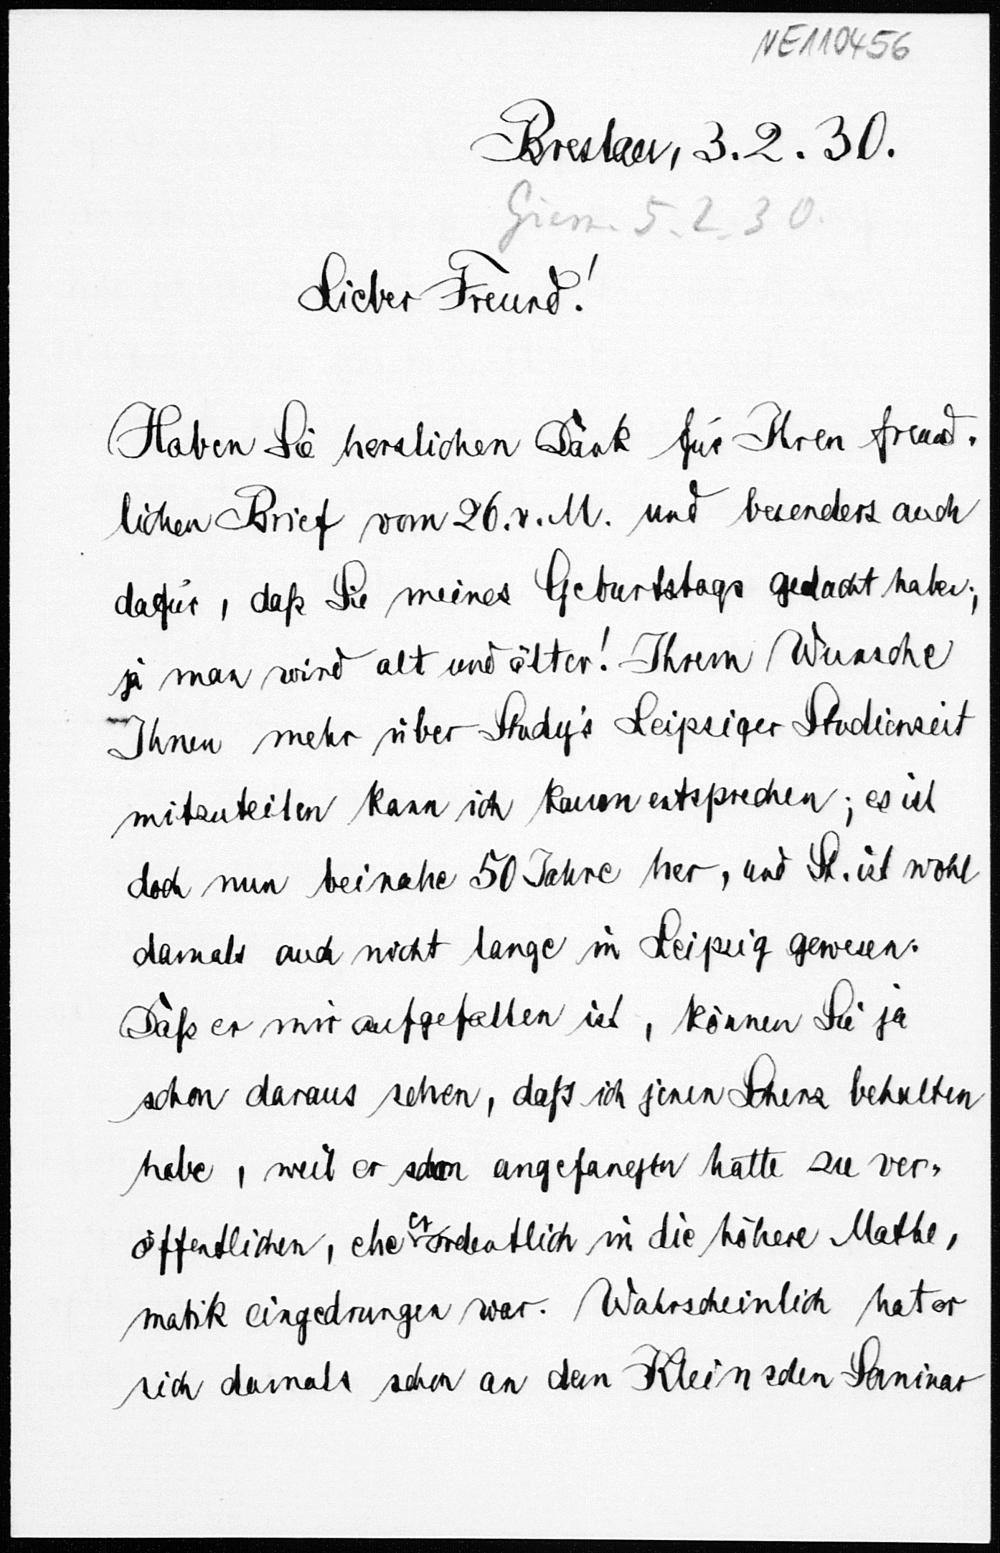 NE110456
Breslau, 3.2.30.
Giess. 5.2.30.
Lieber Freund!
Haben Sie herzlichen Dank für Ihren freund-
lichen Brief vom 26. v. M. und besonders auch
dafür, daß Sie meines Geburtstags gedacht haben;
ja man wird alt und älter! Ihrem Wunsche
Ihnen mehr über Study's Leipziger Studienzeit
mitzuteilen kann ich kaum entsprechen; es ist
doch nun beinahe 50 Jahre her, und St. ist wohl
damals auch nicht lange in Leipzig gewesen.
Daß er mir aufgefallen ist, können Sie ja
schon daraus sehen, daß ich jenen Scherz behalten
habe, weil er schon angefangen hatte zu ver-
öffentlichen, ehe er ordentlich in die höhere Mathe-
matik eingedrungen war. Wahrscheinlich hat er
sich damals schon an dem Kleinschen Seminar